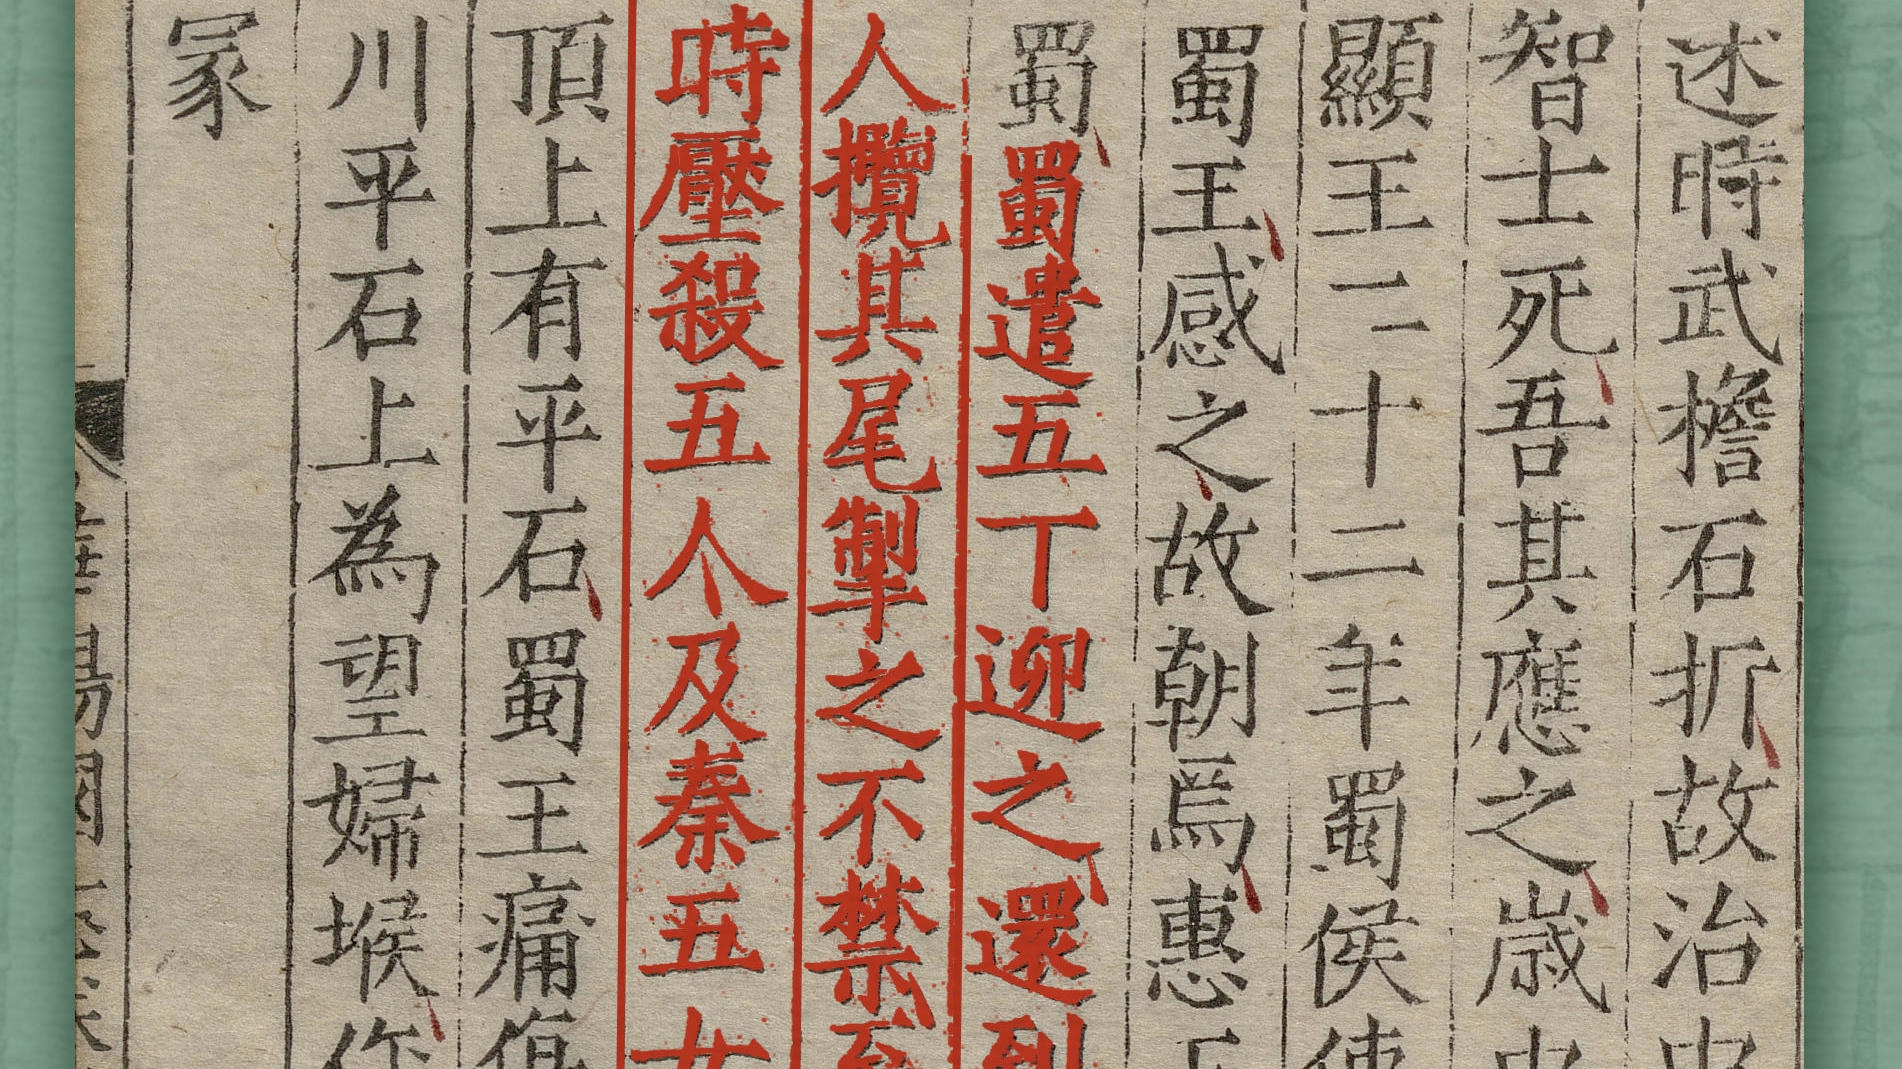 述時武擔石折故治中
智士死吾其應之歲中
顯王二十二年蜀侯使
蜀王感之故朝焉惠王
蜀蜀遣五丁迎之還到
人攬其尾掣之不禁至
時壓殺五人及秦五女
頂上有平石蜀王痛傷
川平石上為望婦堠作
冢
華陽國志卷